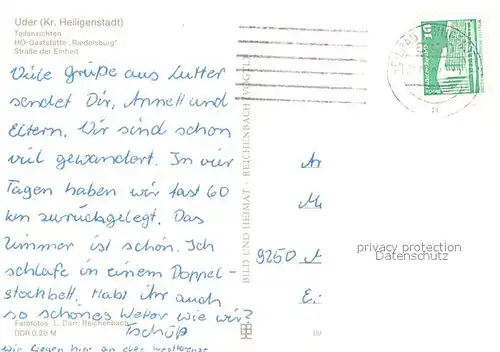 Uder (Kr. Heiligenstadt)
Teilansichten
HO-Gaststätte „Riedelsburg"
Straße der Einheit
Viele Grüße aus Lutter
sendet Dir, Annett und
Eltern. Wir sind schon
viel gewandert. In vier
Tagen haben wir fast 60
km zurückgelegt. Das
Zimmer ist schön. Ich
schlafe in einem Doppel-
stockbett. Habt ihr auch
so schönes Wetter wie wir?
Tschüß
wir liegen hier an der Westgrenze
Farbfotos: L. Darr, Reichenbach
DDR 0,20 M
BILD UND HEIMAT REICHENBACH (VOGTL)
10
9250
privacy protection
Datenschutz